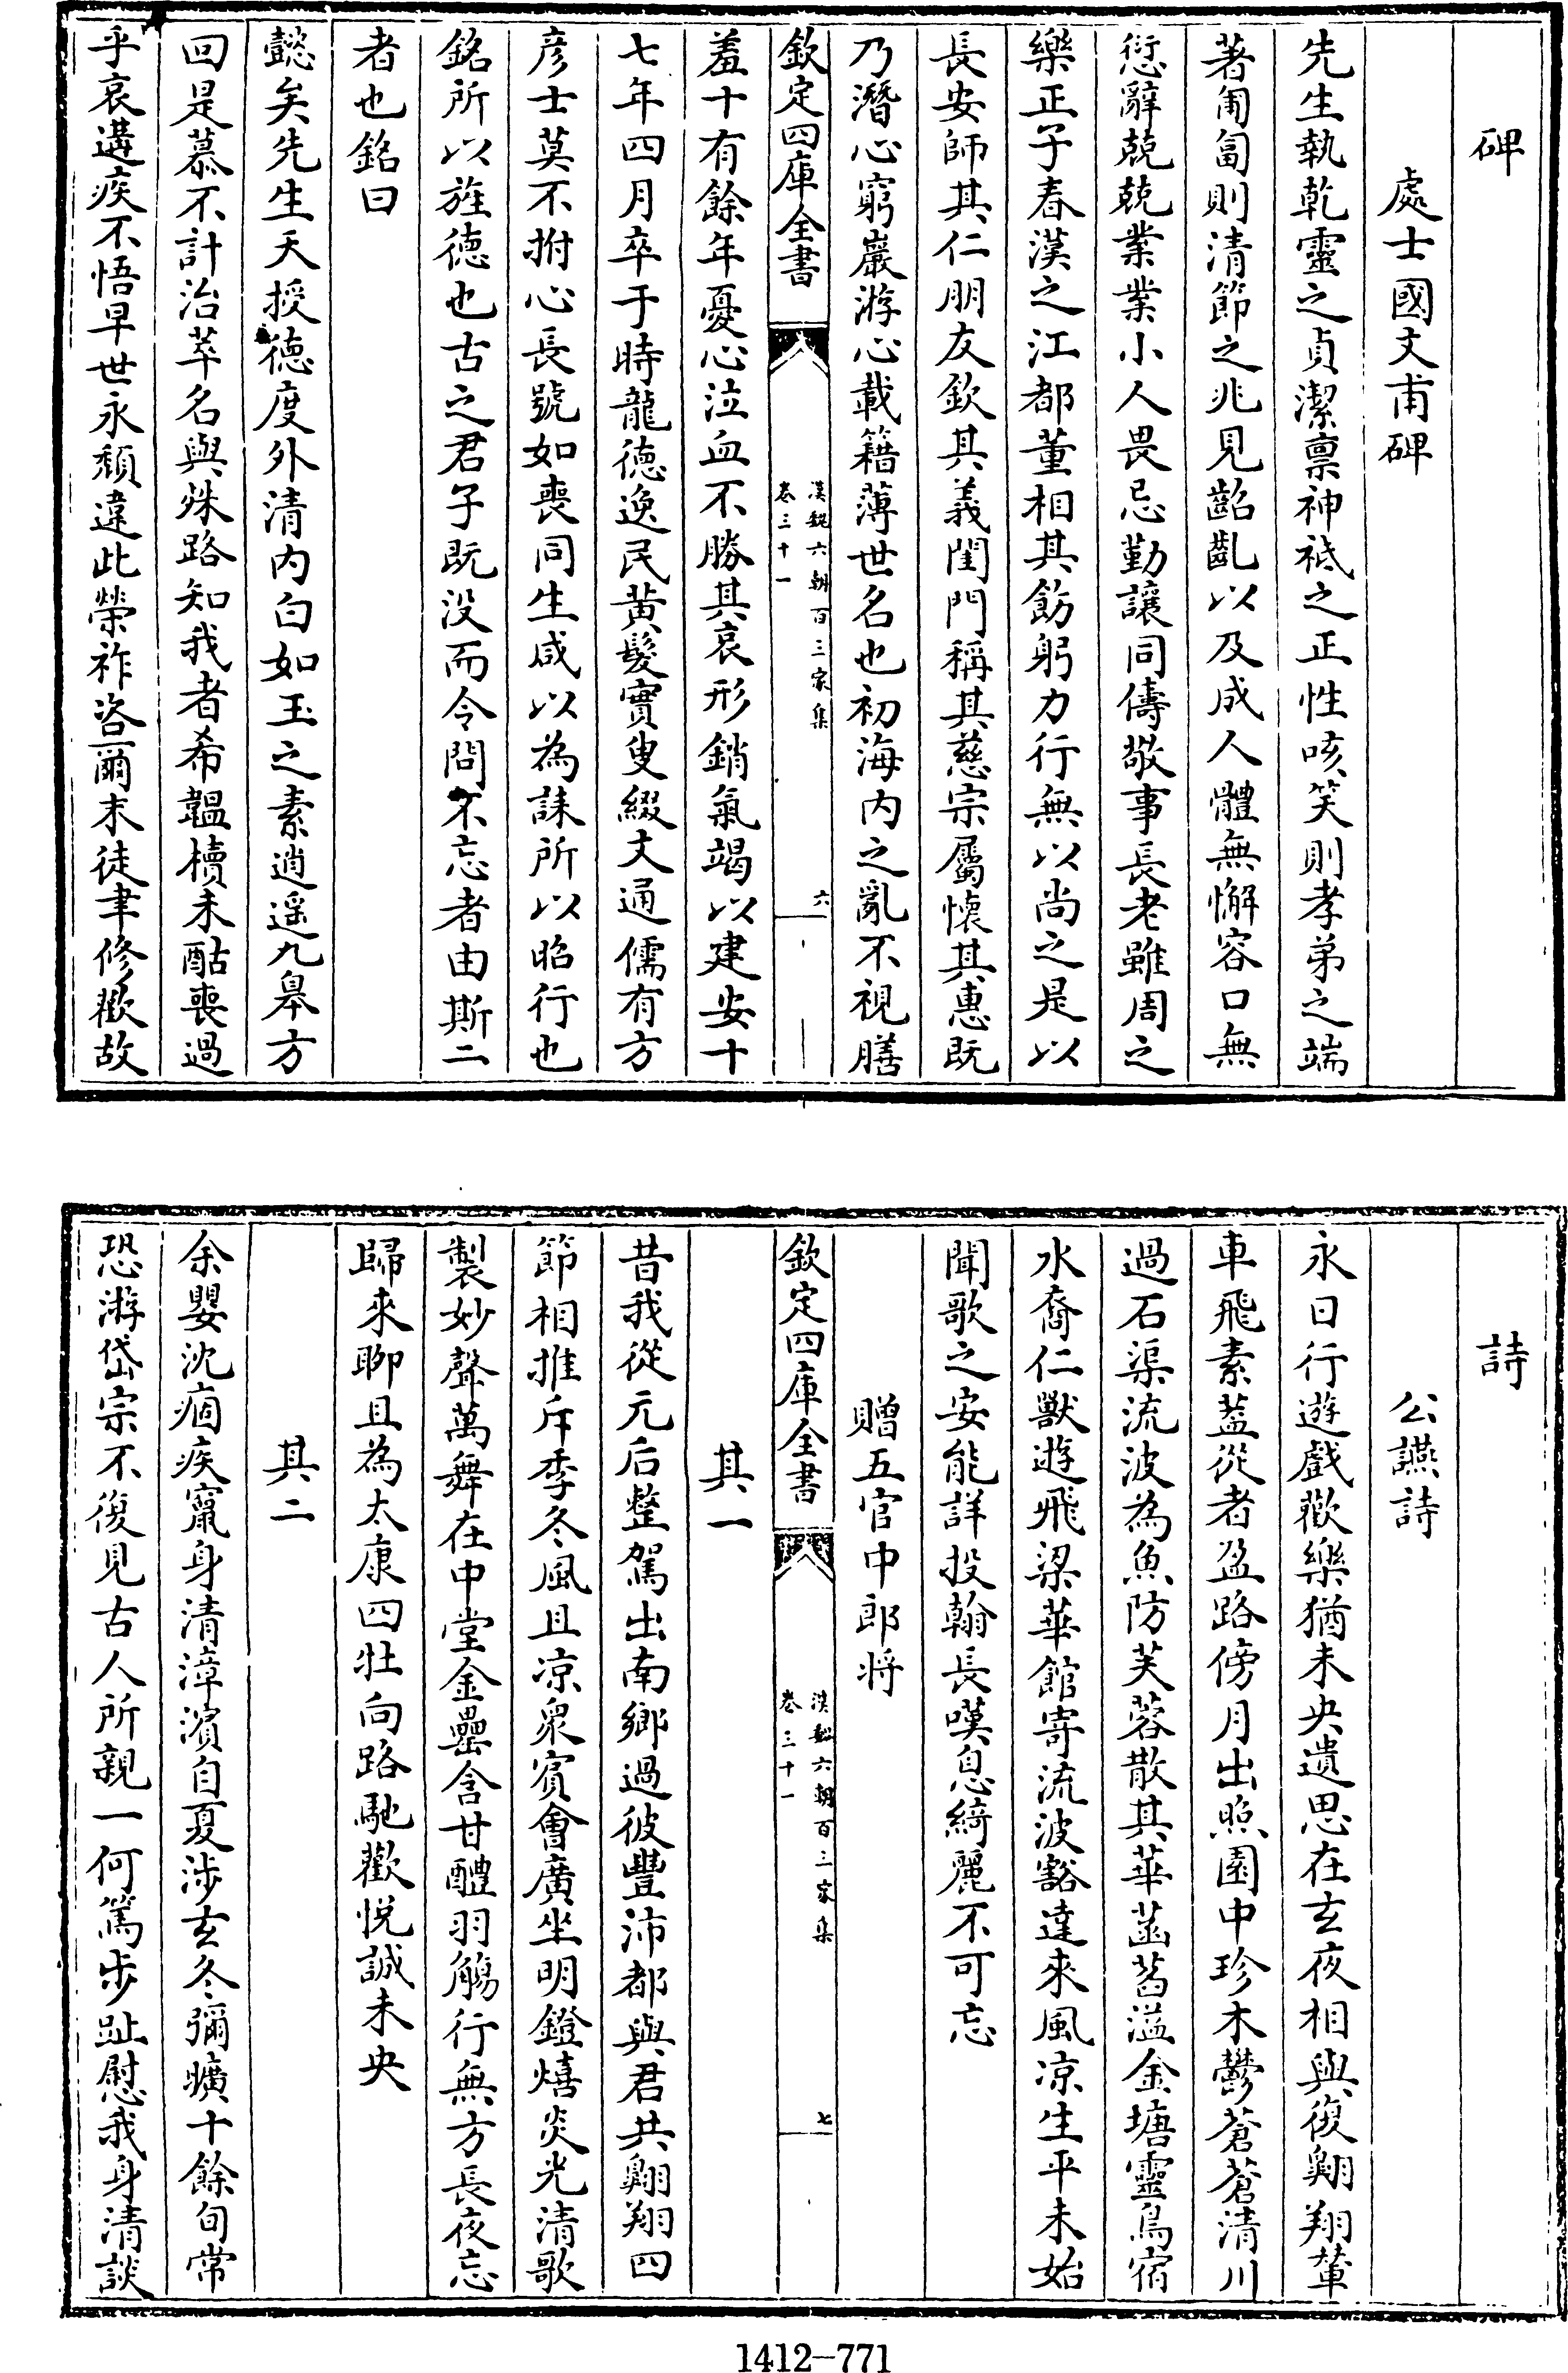 碑
處士國文甫碑
先生執乾靈之貞潔禀神祇之正性咳笑則孝弟之端
著匍匐則清節之兆見齠齔以及成人體無懈容口無
愆辭兢兢業業小人畏忌勤讓同儔敬事長老雖周之
樂正子春漢之江都董相其飭躬力行無以尚之是以
長安師其仁朋友欽其義閨門稱其慈宗屬懷其惠既
乃潛心窮巖游心載籍薄世名也初海内之亂不視膳
欽定四庫全書
漢魏六朝百三家集
卷三十一
六
羞十有餘年憂心泣血不勝其哀形銷氣竭以建安十
七年四月卒于時龍德逸民黄髮實叟綴文通儒有方
彦士莫不拊心長號如喪同生咸以為誄所以昭行也
銘所以旌德也古之君子既没而令問不忘者由斯二
者也銘曰
懿矣先生天授德度外清内白如玉之素逍遥九皋方
回是慕不計治萃名與殊路知我者希韞櫝未酤喪過
乎哀遘疾不悟早世永頽違此榮祚咨爾末徒聿修歡故
詩
公讌詩
永日行遊戲歡樂猶未央遺思在玄夜相與復翺翔輦
車飛素蓋從者盈路傍月出照園中珍木鬱蒼蒼清川
過石渠流波為魚防芙蓉散其華菡萏溢金塘靈鳥宿
水裔仁獸遊飛梁華館寄流波豁達來風凉生平未始
聞歌之安能詳投翰長嘆息綺麗不可忘
贈五官中郎将
欽定四庫全書
漢魏六朝百三家集
卷三十一
七
其一
昔我從元后整駕出南鄉過彼豐沛都與君共翺翔四
節相推斥季冬風且凉衆賓會廣坐明鐙熺炎光清歌
製妙聲萬舞在中堂金罍含甘醴羽觴行無方長夜忘
歸來聊且為太康四牡向路馳歡悅誠未央
其二
余嬰沈痼疾竄身清漳濱自夏涉玄冬彌曠十餘旬常
恐游岱宗不復見古人所親一何篤步趾慰我身清談
1412-771